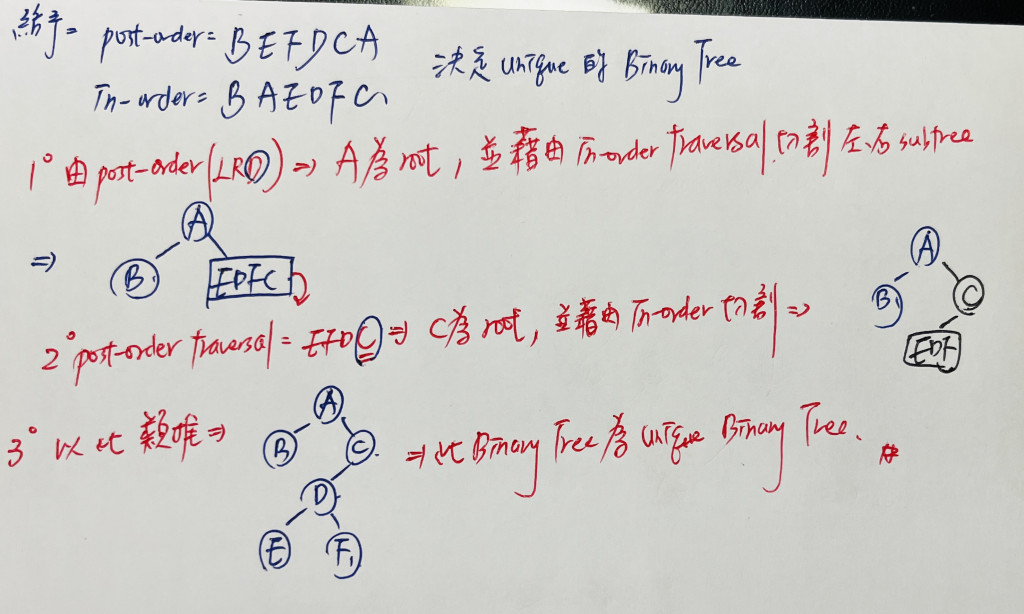 給予= post-order= BEFDCA
In-order= BAEDFC
決定 unique 的 Binary Tree
1° 由 post-order(LRD) => A為root, 並藉由 In-order traversal 切割 左、右 subtree
=>
A
B
EDFC
2° post-order traversal = EFDC => C為 root, 並藉由 In-order 切割 =>
A
B
C
EDF
3° 以此類推 =>
A
B
C
D
E
F
=> 此 Binary Tree 為 unique Binary Tree. #